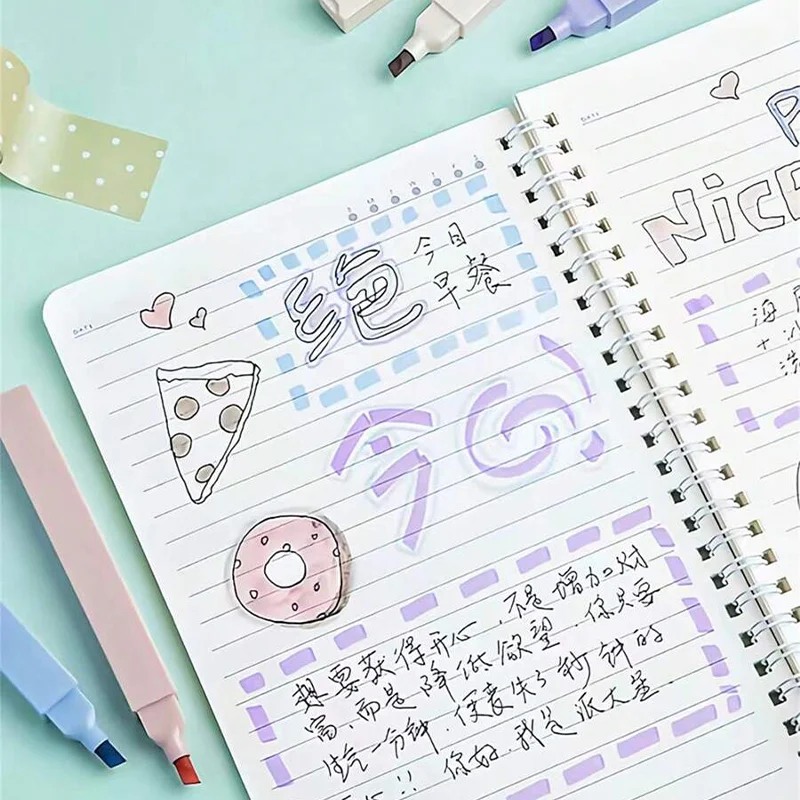 DATE
绝
今日
早餐
今
想要获得开心，不是增加财
富，而是降低欲望．你只要
生气一分钟，便丧失了秒钟的
!! 你好，我是派大星．
DATE
P
NiCE
海